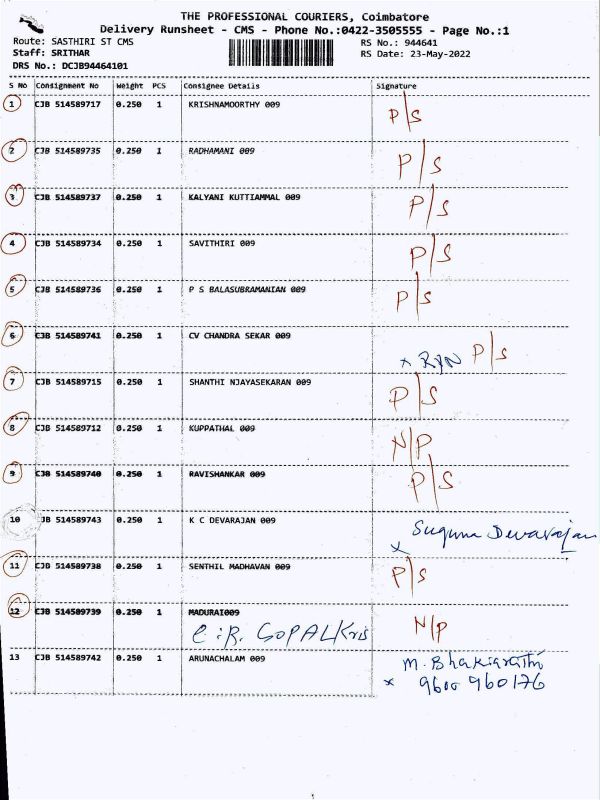 THE PROFESSIONAL COURIERS, Coimbatore
Delivery Runsheet - CMS - Phone No.:0422-3505555 - Page No.:1
Route: SASTHIRI ST CMS RS No.: 944641
Staff: SRITHAR RS Date: 23-May-2022
DRS No.: DCJB94464101
S No Consignment No Weight PCS Consignee Details Signature
1 CJB 514589717 0.250 1 KRISHNAMOORTHY 009 P/S
2 CJB 514589735 0.250 1 RADHAMANI 009 P/S
3 CJB 514589737 0.250 1 KALYANI KUTTIAMMAL 009 P/S
4 CJB 514589734 0.250 1 SAVITHIRI 009 P/S
5 CJB 514589736 0.250 1 P S BALASUBRAMANIAN 009 P/S
6 CJB 514589741 0.250 1 CV CHANDRA SEKAR 009 P/S
7 CJB 514589715 0.250 1 SHANTHI NJAYASEKARAN 009 P/S
8 CJB 514589712 0.250 1 KUPPATHAL 009 N/P
9 CJB 514589740 0.250 1 RAVISHANKAR 009 P/S
10 JB 514589743 0.250 1 K C DEVARAJAN 009 x Suguna Devarajan
11 CJB 514589738 0.250 1 SENTHIL MADHAVAN 009 P/S
12 CJB 514589739 0.250 1 MADURAI009 N/P
GOPALKris
13 CJB 514589742 0.250 1 ARUNACHALAM 009 M. 
x 9600 960176